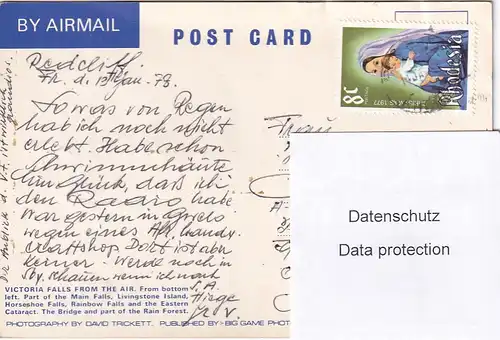 BY AIRMAIL
POST CARD
8c
CHRISTMAS 1977
Rhodesia
Redcliff.
Fr. d. 13. Jan. 78.
Sowas von Regen
hab ich noch nicht
erlebt. Habe schon
Schwimmhäute
ein Glück, daß ich
den Radio habe
War gestern in Gwelo
wegen eines Afr. handy
craftshop Dort ist aber
keiner Werde noch in
Sby. schauen wenn ich nach
S.A.
Der Anblick d. V.F. ist wirklich
grandios.
Frau
Datenschutz
Data protection
VICTORIA FALLS FROM THE AIR. From bottom
left. Part of the Main Falls, Livingstone Island,
Horseshoe Falls, Rainbow Falls and the Eastern
Cataract. The Bridge and part of the Rain Forest.
PHOTOGRAPHY BY DAVID TRICKETT. PUBLISHED BY: BIG GAME PHOT